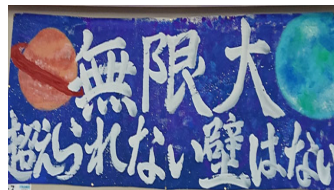 無限大
超えられない壁はない